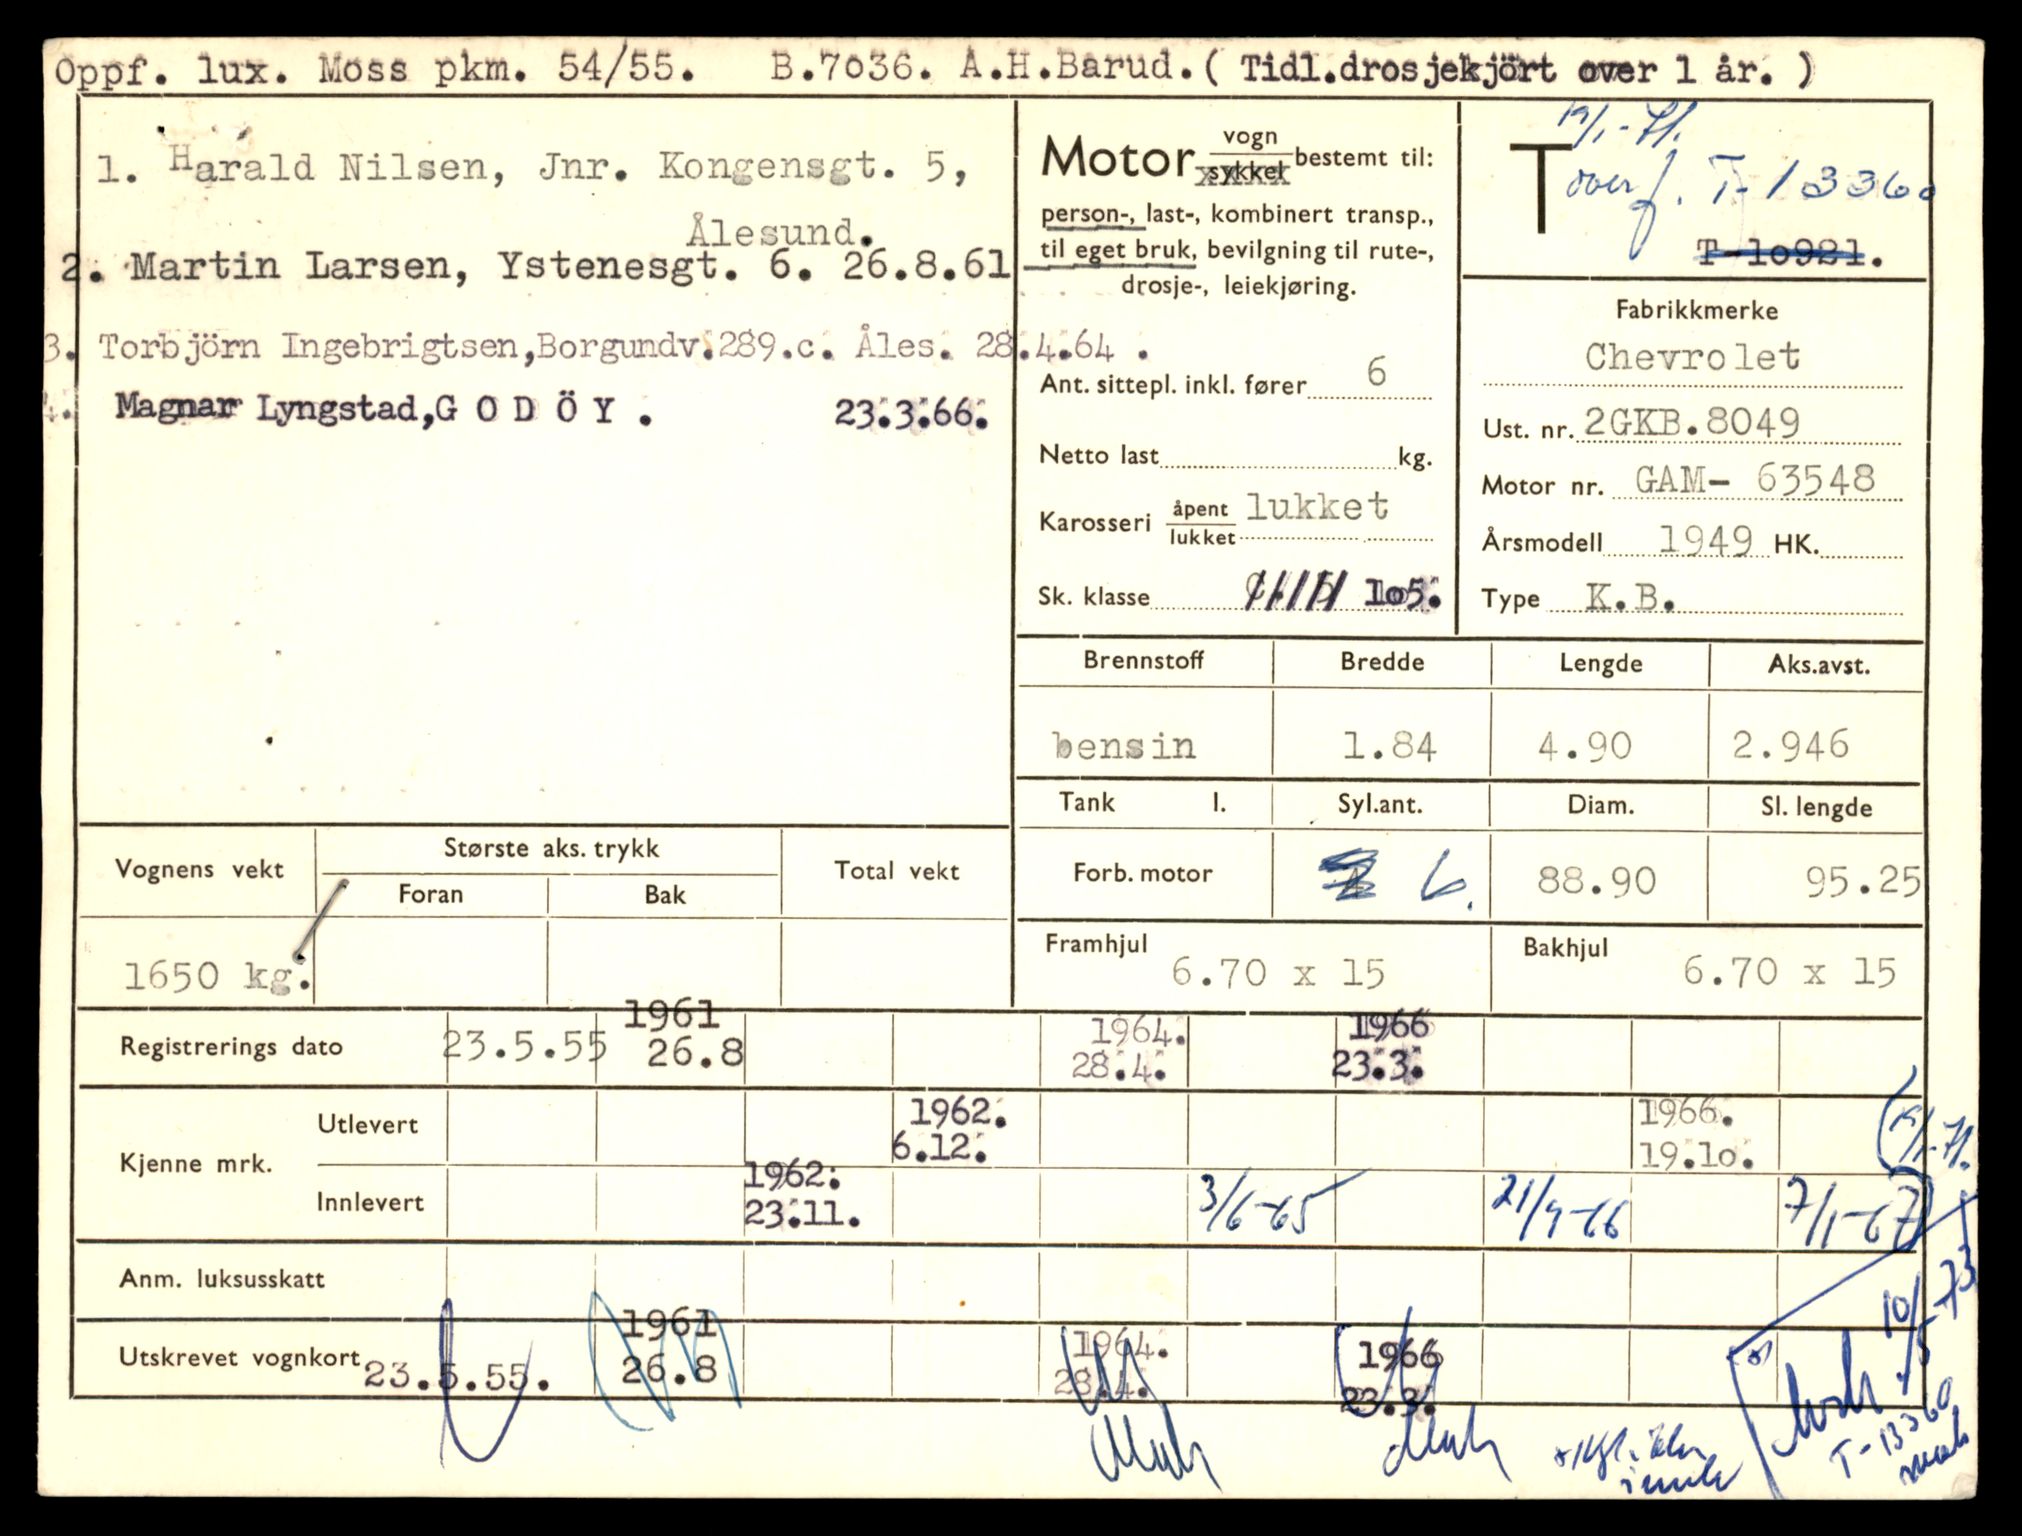 Oppf. lux. Moss pkm. 54/55. B.7036. A.H.Barud.( Tidl.drosjekjört over 1 år. )
1. Harald Nilsen, Jnr. Kongensgt. 5,
Ålesund.
2. Martin Larsen, Ystenesgt. 6. 26.8.61
3. Torbjörn Ingebrigtsen,Borgundv.289.c. Åles. 28.4.64 .
4. Magnar Lyngstad,G O D Ö Y . 23.3.66.
Motor vogn sykkel bestemt til:
person-, last-, kombinert transp.,
til eget bruk, bevilgning til rute-,
drosje-, leiekjøring.
Ant. sittepl. inkl. fører 6
Netto last kg.
Karosseri åpent lukket lukket
Sk. klasse 105.
19/1-71.
T overf. T-13360
T-10921.
Fabrikkmerke
Chevrolet
Ust. nr. 2GKB.8049
Motor nr. GAM- 63548
Årsmodell 1949 HK.
Type K.B.
Brennstoff Bredde Lengde Aks.avst.
bensin 1.84 4.90 2.946
Tank l. Syl.ant. Diam. Sl. lengde
Forb. motor 6. 88.90 95.25
Framhjul 6.70 x 15 Bakhjul 6.70 x 15
Vognens vekt Største aks. trykk Total vekt
Foran Bak
1650 kg.
1961 1964. 1966
Registrerings dato 23.5.55 26.8 28.4. 23.3.
Kjenne mrk.
Utlevert 1962. 6.12. 1966. 19.10. 19/1-71.
Innlevert 1962. 23.11. 3/6-65 21/9-66 7/1-67
Anm. luksusskatt
1961 1964. 1966
Utskrevet vognkort 23.5.55. 26.8 28.4. 23.3.
10/5-73
T-13360